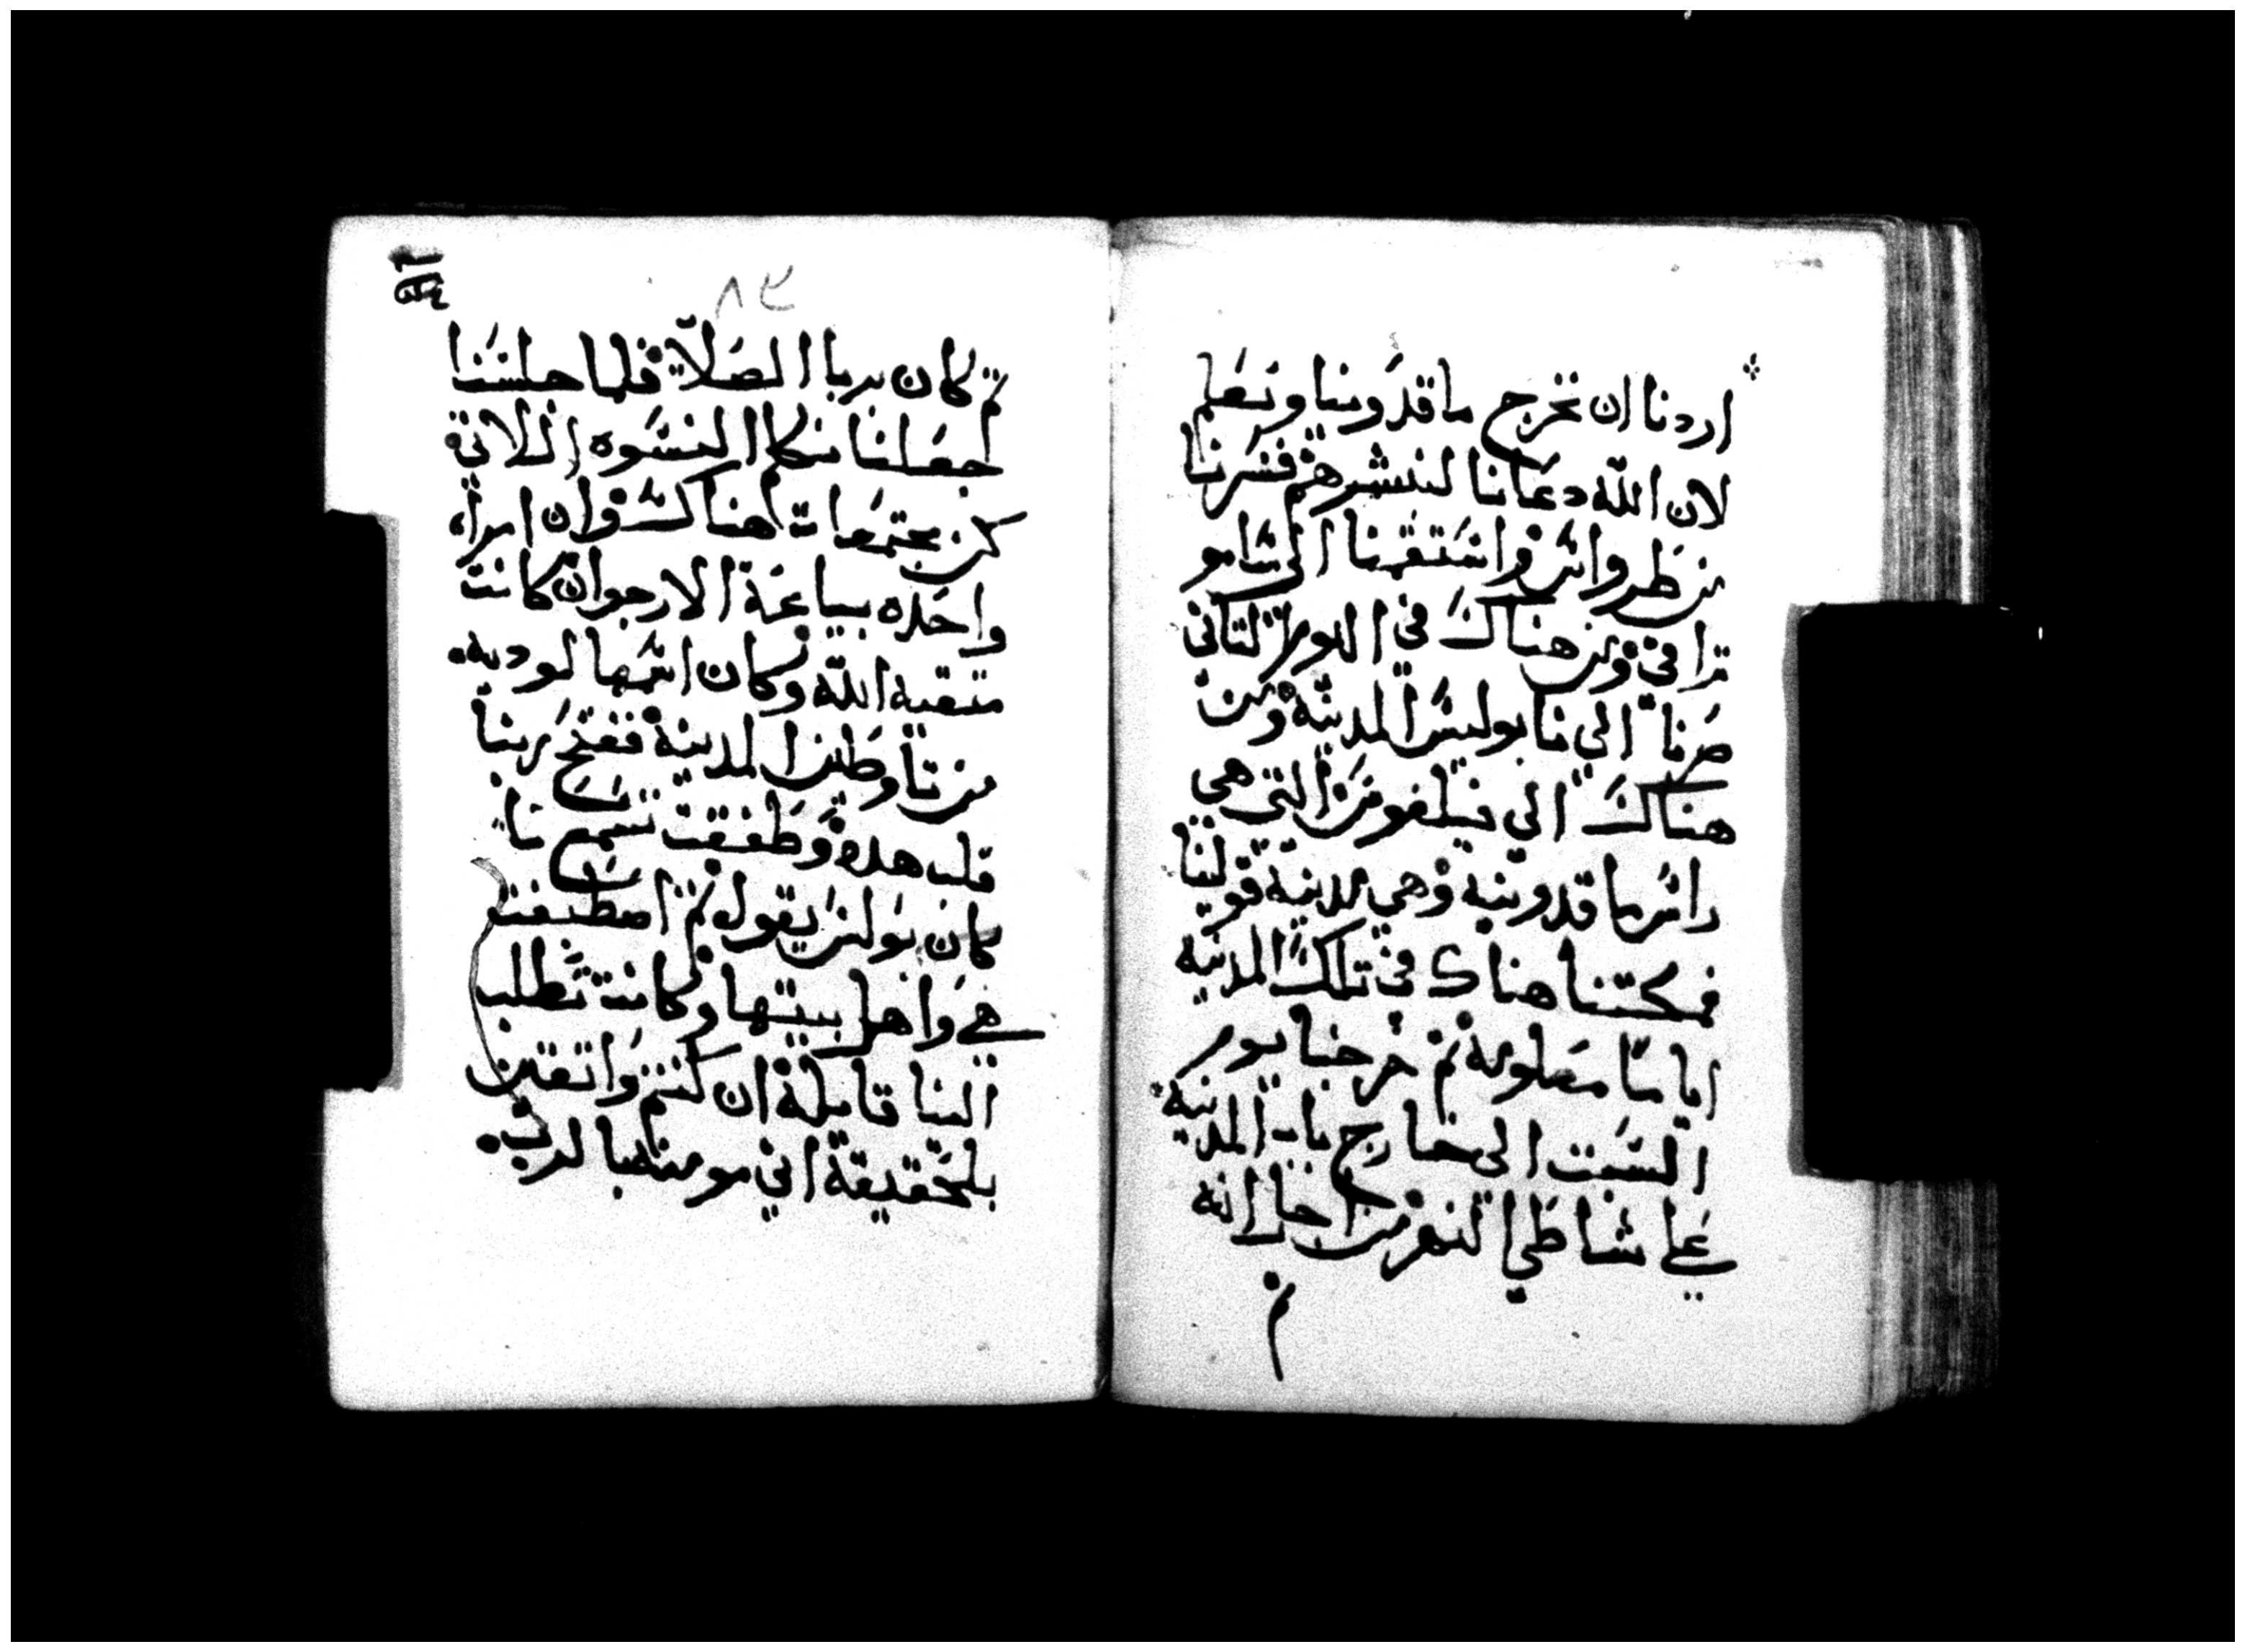 اردنا ان نخرج ماقدونيا ونعلم
لان الله دعانا لنبشرهم فسرنا
من طرواس واستقمنا الى سامو
تراقي ومن هناك في اليوم التاني
صرنا الي نابوليس المدينه ومن
هناك الي فيلفوس التي هي
راس ماقدونيه وهي مدينة قولنيا
فمكتنا هناك في تلك المدينه
اياما معلومة ثم خرجنا يوم
السبت الى خارج باب المدينه
علي شاطي النهر من اجل انه
ثم
٨٣
ثم كان يريا الصلاة فلما جلسنا
جعلنا نتكلم النسوه اللاتي
كن مجتمعات هناك وان امراه
واحده بياعة الارجوان كانت
متقيه الله وكان اسمها لوديه
من تاوطير المدينة ففتح ربنا
قلب هده وطفقت تسمع ما
كان بولس يقول ثم اصطبغت
هي واهل بيتها وكانت تطلب
الينا قايلة ان كنتم واتقين
بلحقيقة اني مومنه بالرب